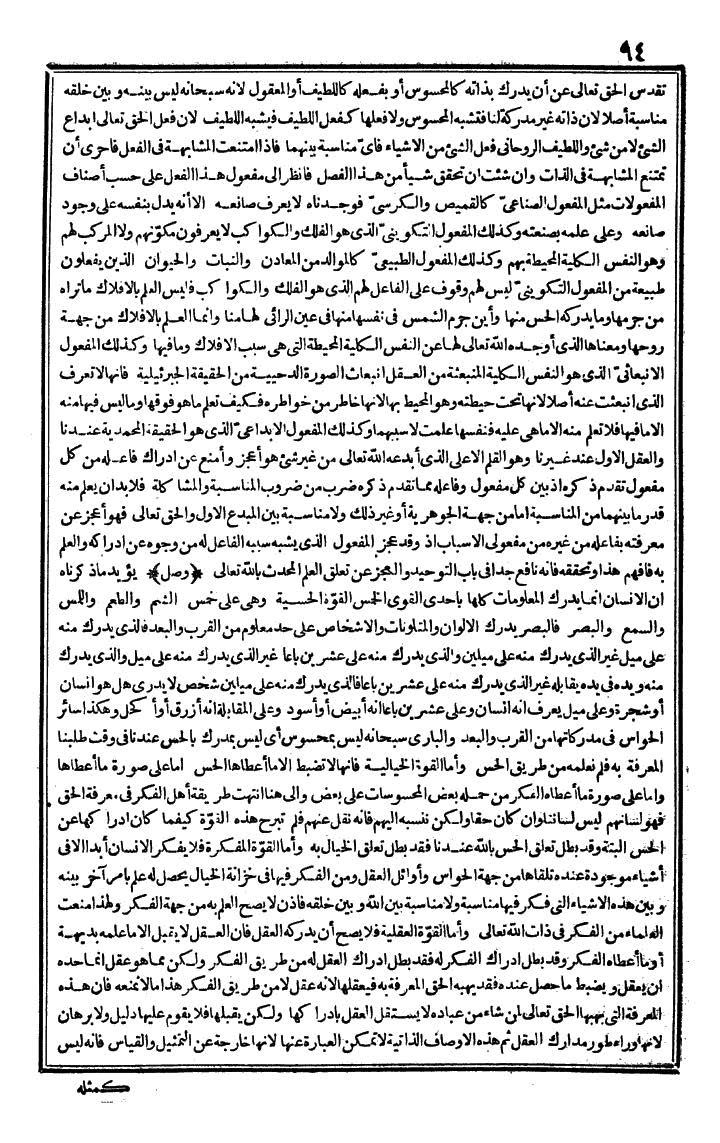 ٩٤
تقدس الحق تعالى عن أن يدرك بذاته كالمحسوس أو بفعله كاللطيف أو المعقول لانه سبحانه ليس بينه وبين خلقه
مناسبة أصلا لان ذاته غير مدركة لنا فتشبه المحسوس ولا فعلها كفعل اللطيف فيشبه اللطيف لان فعل الحق تعالى ابداع
الشئ لامن شئ واللطيف الروحاني فعل الشئ من الاشياء فأى مناسبة بينهما فاذا امتنعت المشابهة فى الفعل فاحرى أن
تمتنع المشابهة فى الذات وان شئت ان تحقق شيأ من هذا الفصل فانظر الى مفعول هذا الفعل على حسب أصناف
المفعولات مثل المفعول الصناعىّ كالقميص والكرسى فوجدناه لا يعرف صانعه الا أنه يدل بنفسه على وجود
صانعه وعلى علمه بصنعته وكذلك المفعول التكوينىّ الذى هو الفلك والكواكب لا يعرفون مكوّنهم ولا المركب لهم
وهو النفس الكلية المحيطة بهم وكذلك المفعول الطبيعىّ كالموالد من المعادن والنبات والحيوان الذين يفعلون
طبيعة من المفعول التكوينىّ ليس لهم وقوف على الفاعل لهم الذى هو الفلك والكواكب فليس العلم بالافلاك ماتراه
من جرمها وما يدركه الحس منها وأين جرم الشمس فى نفسها منها فى عين الرائى لها منا وانما العلم بالافلاك من جهة
روحها ومعناها الذى أوجده الله تعالى لها عن النفس الكلية المحيطة التى هى سبب الافلاك وما فيها وكذلك المفعول
الانبعاثىّ الذى هو النفس الكلية المنبعثة من العقل انبعاث الصورة الدحيية من الحقيقة الجبرئيلية فانها لا تعرف
الذى انبعثت عنه أصلا لانها تحت حيطته وهو المحيط بها لانها خاطر من خواطره فكيف تعلم ما هو فوقها وما ليس فيها منه
الا ما فيها فلا تعلم منه الا ما هى عليه فنفسها علمت لا سببها وكذلك المفعول الابداعىّ الذى هو الحقيقة المحمدية عندنا
والعقل الاول عند غيرنا وهو القلم الاعلى الذى أبدعه الله تعالى من غير شئ هو أعجز وأمنع عن ادراك فاعله من كل
مفعول تقدم ذكره اذ بين كل مفعول وفاعله مما تقدم ذكره ضرب من ضروب المناسبة والمشاكلة فلا بد ان يعلم منه
قدر ما بينهما من المناسبة اما من جهة الجوهرية أو غير ذلك ولا مناسبة بين المبدع الاول والحق تعالى فهو أعجز عن
معرفته بفاعله من غيره من مفعولى الاسباب اذ وقد عجز المفعول الذى يشبه سببه الفاعل له من وجوه عن ادراكه والعلم
به فافهم هذا وتحققه فانه نافع جدا فى باب التوحيد والعجز عن تعلق العلم المحدث بالله تعالى ﴿وصل﴾ يؤيد ما ذكرناه
ان الانسان انما يدرك المعلومات كلها باحدى القوى الخمس القوة الحسية وهى على خمس الشم والطعم واللمس
والسمع والبصر فالبصر يدرك الالوان والمتلونات والاشخاص على حد معلوم من القرب والبعد فالذى يدرك منه
على ميل غير الذى يدرك منه على ميلين والذى يدرك منه على عشرين باعا غير الذى يدرك منه على ميل والذى يدرك
منه ويده فى يده يقابله غير الذى يدرك منه على عشرين باعا فالذى يدرك منه على ميلين شخص لا يدرى هل هو انسان
أو شجرة وعلى ميل يعرف انه انسان وعلى عشرين باعا انه أبيض أو أسود وعلى المقابلة انه أزرق أو أكحل وهكذا سائر
الحواس فى مدركاتها من القرب والبعد والبارى سبحانه ليس بمحسوس أى ليس بمدرك بالحس عندنا فى وقت طلبنا
المعرفة به فلم نعلمه من طريق الحس وأما القوة الخيالية فانها لا تضبط الا ما أعطاها الحس اما على صورة ما أعطاها
واما على صورة ما أعطاه الفكر من حمله بعض المحسوسات على بعض والى هنا انتهت طريقة أهل الفكر فى معرفة الحق
فهو لسانهم ليس لساننا وان كان حقا ولكن ننسبه اليهم فانه نقل عنهم فلم تبرح هذه القوّة كيفما كان ادراكها عن
الحس البتة وقد بطل تعلق الحس بالله عندنا فقد بطل تعلق الخيال به وأما القوّة المفكرة فلا يفكر الانسان أبدا الا فى
أشياء موجودة عنده تلقاها من جهة الحواس وأوائل العقل ومن الفكر فيها فى خزانة الخيال يحصل له علم بامر آخر بينه
وبين هذه الاشياء التى فكر فيها مناسبة ولا مناسبة بين الله وبين خلقه فاذن لا يصح العلم به من جهة الفكر ولهذا منعت
العلماء من الفكر فى ذات الله تعالى وأما القوّة العقلية فلا يصح أن يدركه العقل فان العقل لا يقبل الا ما علمه بديهة
أو ما أعطاه الفكر وقد بطل ادراك الفكر له فقد بطل ادراك العقل له من طريق الفكر ولكن مما هو عقل انما حده
ان يعقل ويضبط ما حصل عنده فقد يهبه الحق المعرفة به فيعقلها لانه عقل لا من طريق الفكر هذا ما لا نمنعه فان هذه
المعرفة التى يهبها الحق تعالى لمن شاء من عباده لا يستقل العقل بادراكها ولكن يقبلها فلا يقوم عليها دليل ولا برهان
لانها وراء طور مدارك العقل ثم هذه الاوصاف الذاتية لا تمكن العبارة عنها لانها خارجة عن التمثيل والقياس فانه ليس
كمثله